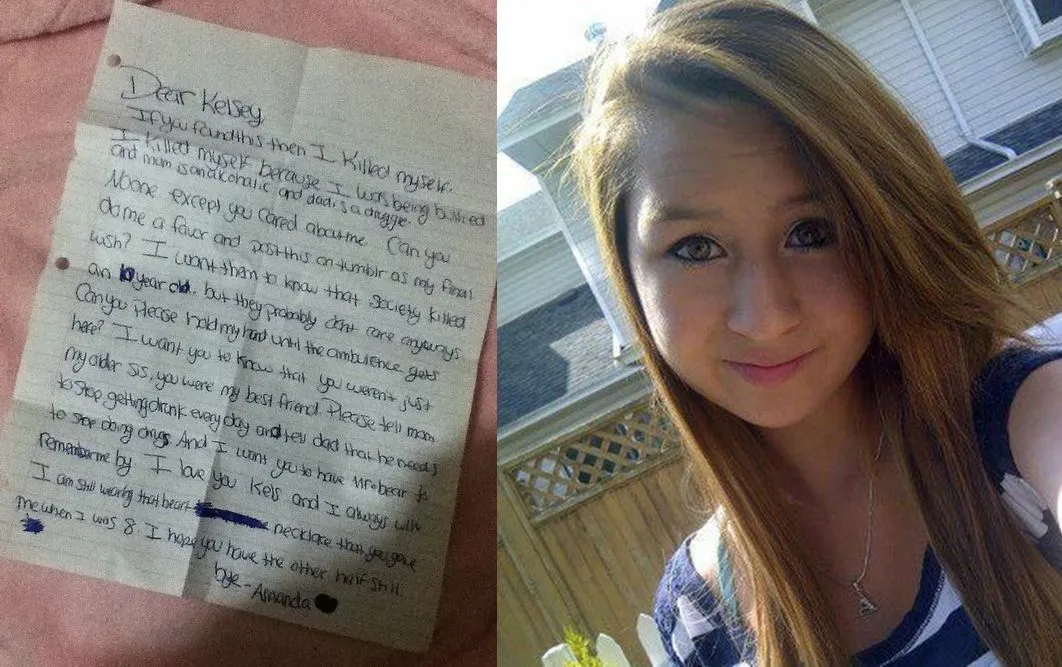 Dear Kelsey,
If you found this then I Killed myself.
I killed myself because I was being bullied
and mum is an akoholic and dad is a druggie.
Noone except you cared about me. Can you
do me a favor and post this on tumblr as my final
wish? I want them to know that society killed
an year old. but they probably dont care anyways.
Can you Please hold my hand until the ambulence gets
here? I want you to know that you weren't just
my older sis, you were my best friend. Please tell mom
to stop getting drunk every day and tell dad that he needs
to stop doing drugs And I want you to have Mr bear to
remember me by I love you Kels and I always will
I am still wearing that heart necklace that you gave
me when I was 8. I hope you have the other half still.
bye - Amanda
A